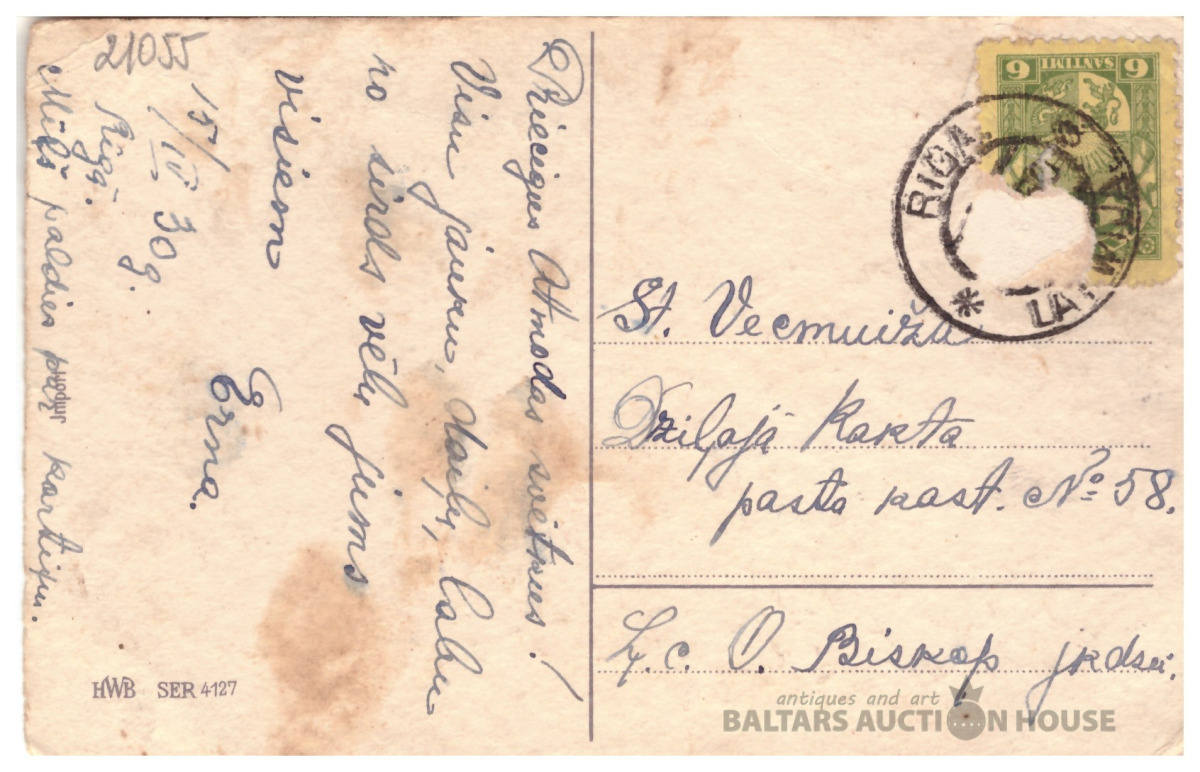 21055
Priecīgus Atmodas svētkus!
Visu jauku, daiļu, labu
no sirds vēlu jums
visiem
Erna.
15/IV 30 g.
Rīgā.
Mīļš paldies par kartiņu.
Import
HWB SER 4127
6 SANTIMI 6
RIGA
LATWIJA
St. Vecmuiža
Dziļajā Kaktā
pasta kast. № 58.
O. Biskop jkdzei.
antiques and art
BALTARS AUCTION HOUSE